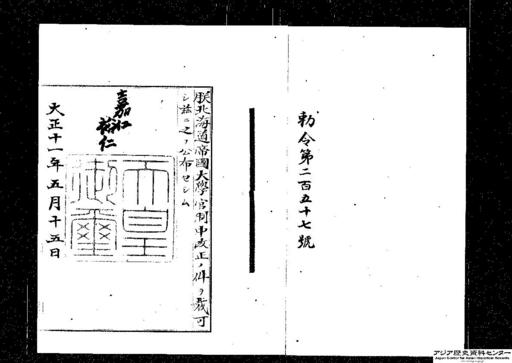 勅令第二百五十七號
朕北海道帝國大學官制中改正ノ件ヲ裁可
シ茲ニ之ヲ公布セシム
嘉仁
裕仁
天皇
御璽
大正十一年五月十五日
アジア歴史資料センター
Japan Center for Asian Historical Records